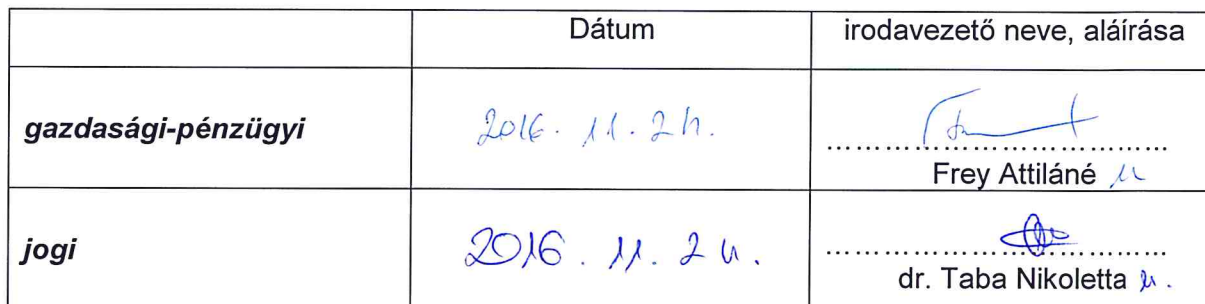 Dátum
irodavezető neve, aláírása
gazdasági-pénzügyi
2016. 11. 24.
………………………………
Frey Attiláné
jogi
2016. 11. 24.
………………………………
dr. Taba Nikoletta